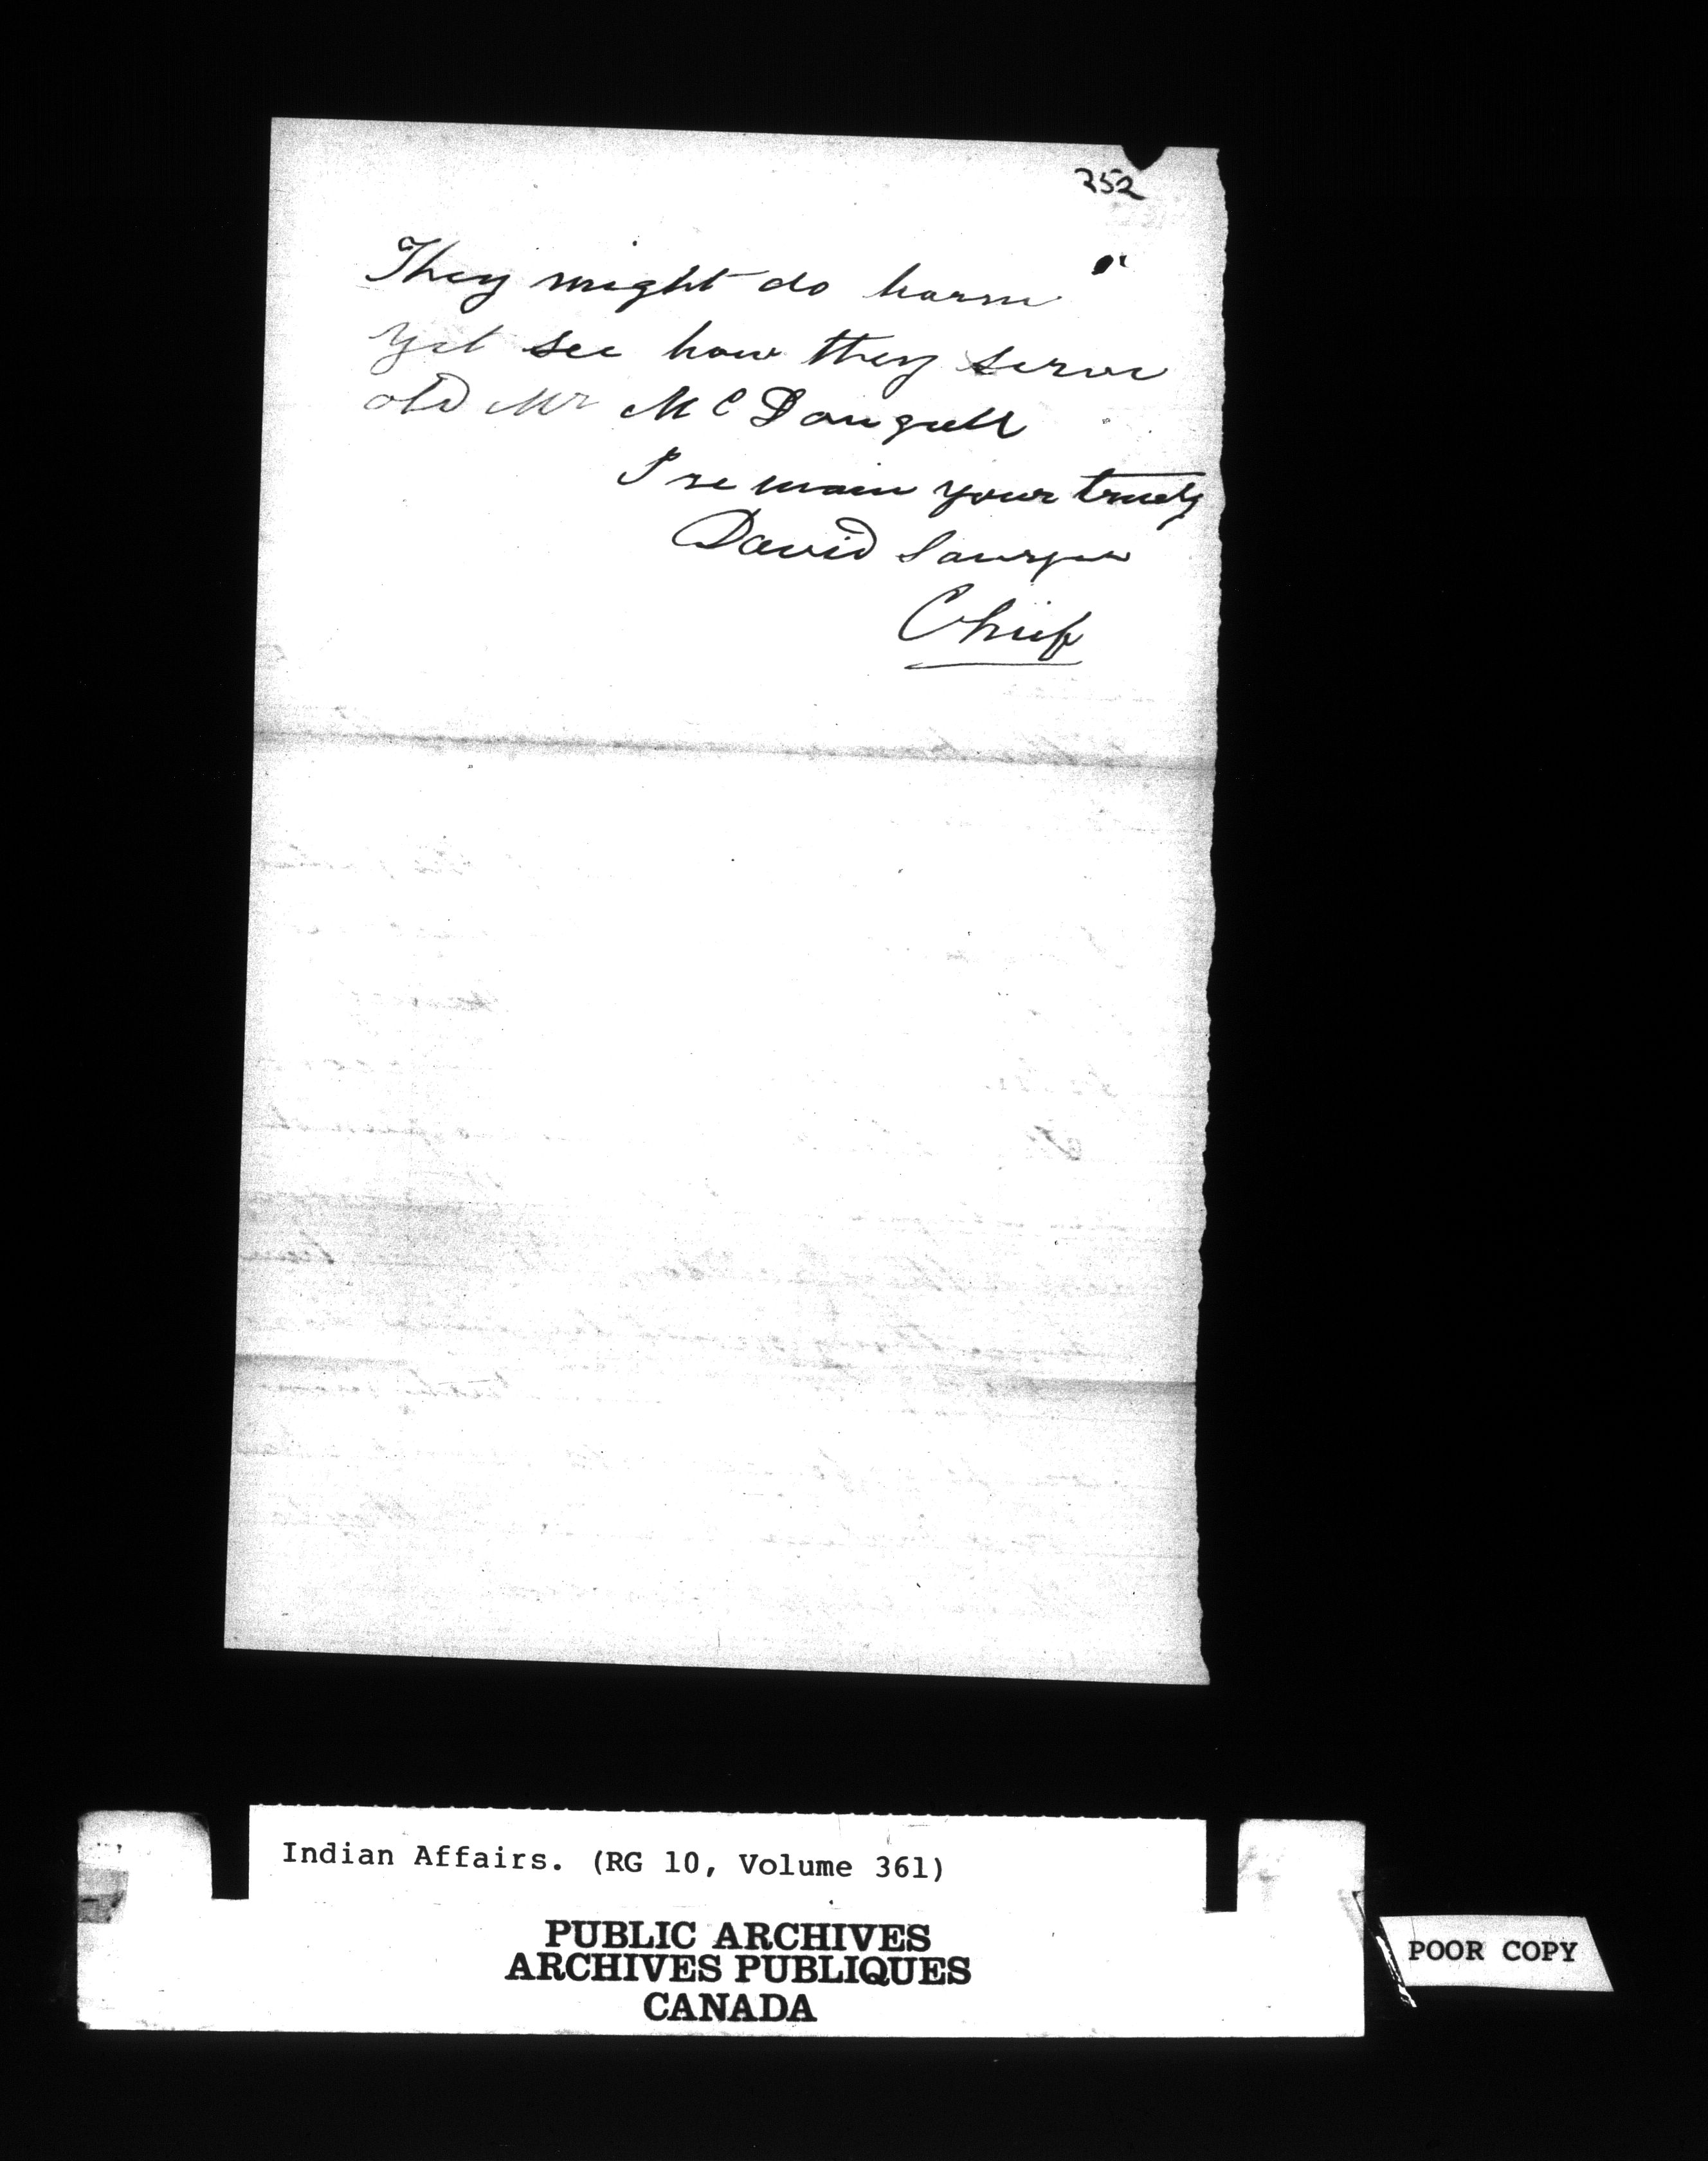 352
They might do harm
yet see how they serve
old Mr McDougall
I remain your truely
David Sawyer
Chief
Indian Affairs. (RG 10, Volume 361)
PUBLIC ARCHIVES
ARCHIVES PUBLIQUES
CANADA
POOR COPY